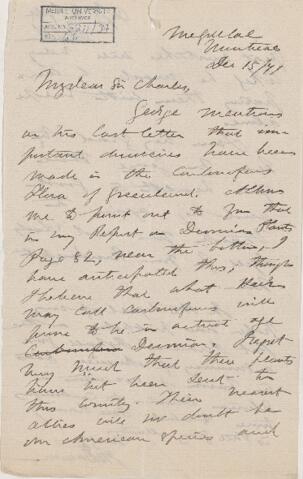 McGILL UNIVERSITY
ARCHIVES
McGill Col
Montreal
Dec 15/71
My dear Sir Charles,
George mentions
in his last letter that im-
portant discoveries have been
made in the carboniferous
Flora of Greenland. Allow
me to point out to you that
in my Report on Devonian Plants
Page 82, near the bottom, I
have anticipated this, though
I believe that what Heer
may call carboniferous will
prove to be in actual age
Devonian. I regret
very much that these plants
have not been sent to
this country. Their nearest
allies will no doubt be
our American species and